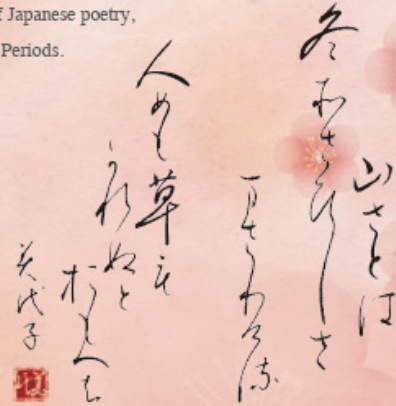 f Japanese poetry,
Periods.
山さとは
冬そさひしさ
まさりける
人めも草も
かれぬと
おもへは